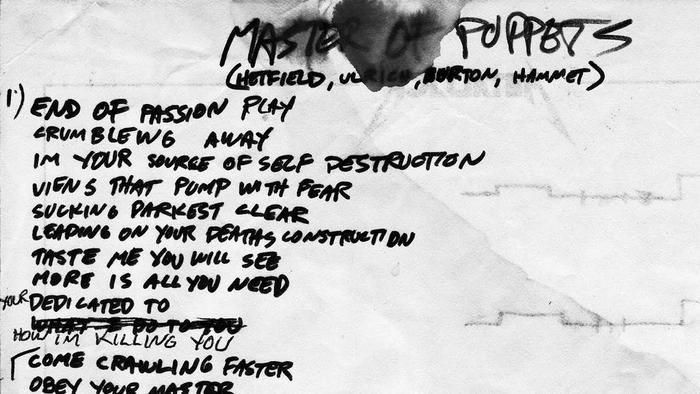 MASTER OF PUPPETS
(HETFIELD, ULRICH, BURTON, HAMMET)
1) END OF PASSION PLAY
CRUMBLEWG AWAY
IM YOUR SOURCE OF SELF DESTRUCTION
VIENS THAT PUMP WITH FEAR
SUCKING DARKEST CLEAR
LEADING ON YOUR DEATHS CONSTRUCTION
TASTE ME YOU WILL SEE
MORE IS ALL YOU NEED
YOUR DEDICATED TO
WHAT I DO TO YOU
HOW IM KILLING YOU
COME CRAWLING FASTER
OBEY YOUR MASTER